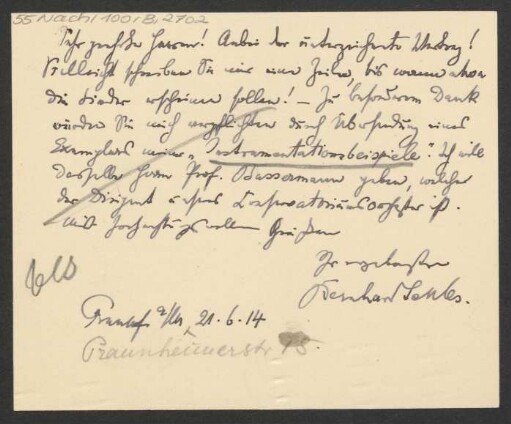 55 Nachl 100/B, 2702
Sehr geehrte Herren! Anbei der unterzeichnete Vertrag!
Vielleicht schreiben Sie mir eine Zeile, bis wann etwa
die Lieder erscheinen sollen! – Zu besonderem Dank
würden Sie mich verpflichten durch Übersendung eines
Exemplars meiner „Instrumentationsbeispiele". Ich will
dasselbe Herrn Prof. Bassermann geben, welcher
der Dirigent unseres Conservatoriumsorchester ist.
Mit hochachtungsvollen Grüßen
Ihr ergebenster
Bernhard Sekles.
Frankf a/M, 21.6.14
Praunheimerstr 15.